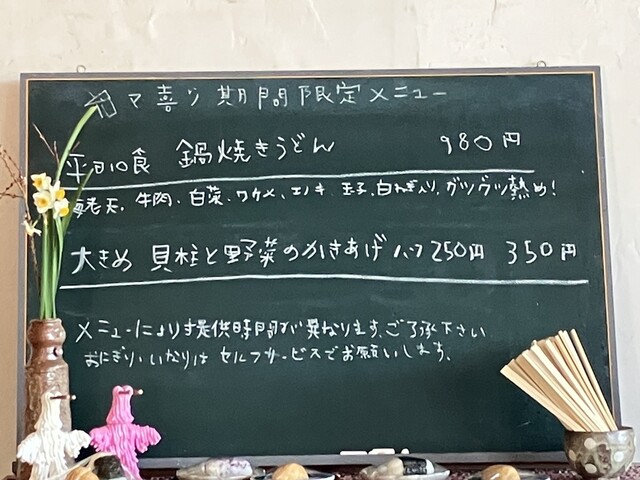 マ喜り 期間限定メニュー
平日10食 鍋焼きうどん 980円
海老天、牛肉、白菜、ワカメ、エノキ、玉子、白ねぎ入り、グツグツ熱め!
大きめ 貝柱と野菜のかきあげ ハーフ250円 350円
メニューにより提供時間が異なります、ご了承下さい
おにぎり・いなりは セルフサービスでお願いします、